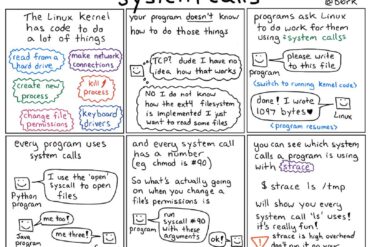 system calls
@b0rk
The Linux kernel
has code to do
a lot of things
read from a
hard drive
make network
connections
create new
process
kill
process
change file
permissions
keyboard
drivers
your program doesn't know
how to do those things
TCP? dude I have no
idea, how that works
NO I do not know
how the ext4 filesystem
is implemented I just
want to read some files
programs ask Linux
to do work for them
using system calls
please write
to this file
program
(switch to running kernel code)
done! I wrote
1097 bytes
Linux
(program resumes)
every program uses
system calls
I use the 'open'
syscall to open
files
Python
program
me too!
Java
program
me three!
and every system call
has a number
(eg chmod is #90)
So what's actually going
on when you change a
file's permissions is
run
syscall #90
with these
arguments
program
ok!
you can see which system
calls a program is using
with strace
$ strace ls /tmp
will show you every
system call 'ls' uses!
it's really fun!
strace is high overhead